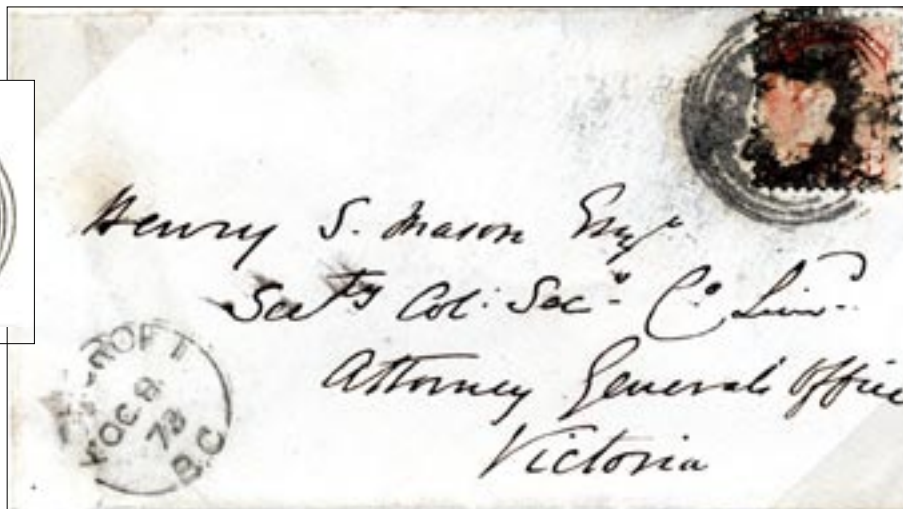 Henry S. Mason Esqr.
Secty Col: Sec Co Limd.
Attorney General's Office
Victoria
CROFT
OC 8
73
B.C